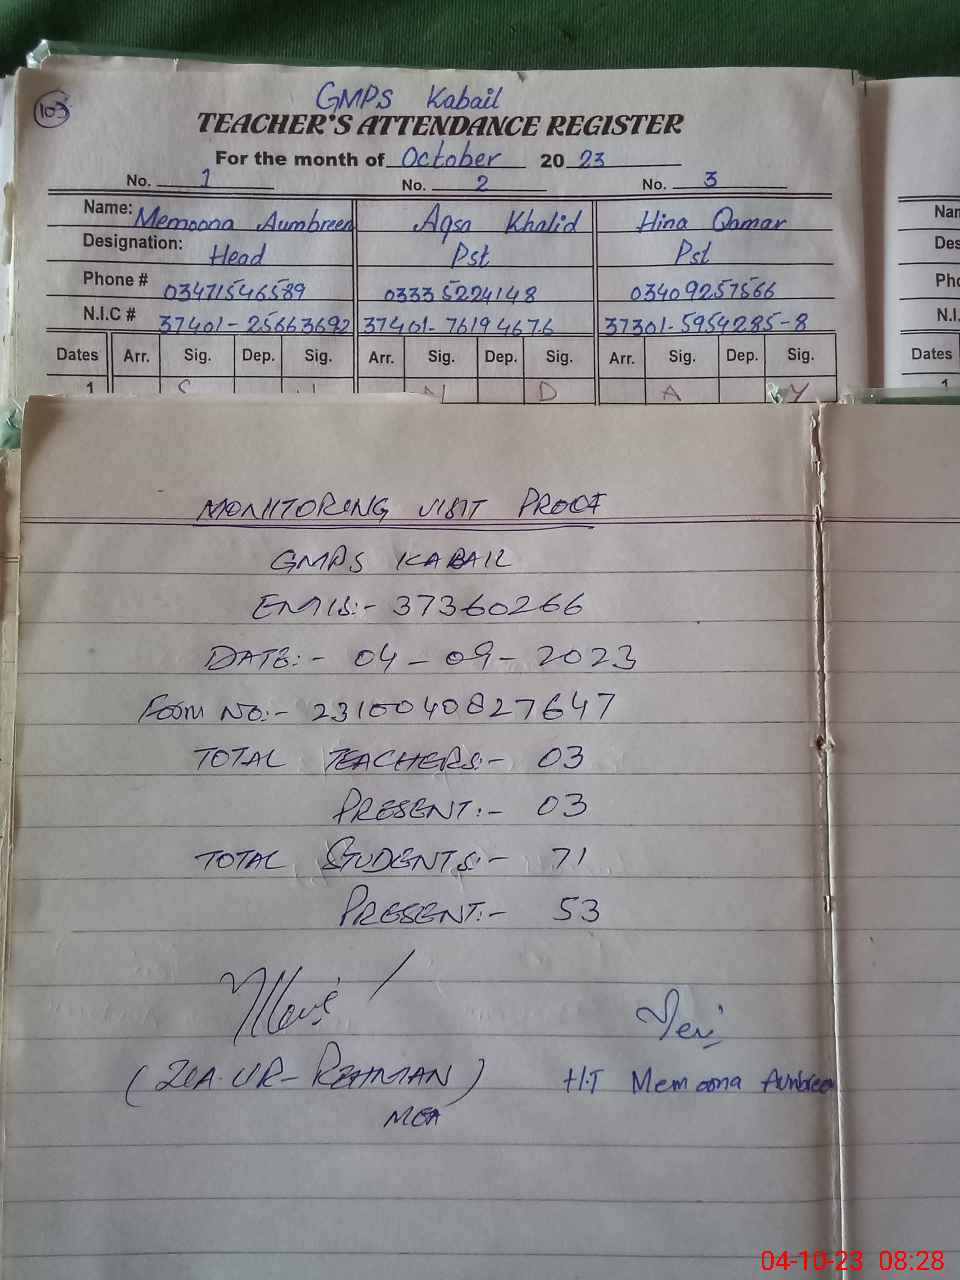 GMPS Kabail
103
TEACHER'S ATTENDANCE REGISTER
For the month of October 20 23
No. 1 No. 2 No. 3
Name: Memoona Aumbreen Aqsa Khalid Hina Qamar
Designation: Head Pst Pst
Phone # 03471546589 03335224148 03409257566
N.I.C # 37401-25663692 37401-7619467.6 37301-5954285-8
Dates Arr. Sig. Dep. Sig. Arr. Sig. Dep. Sig. Arr. Sig. Dep. Sig.
1 S U N D A Y
Nam
Des
Pho
N.I.
Dates
1
MONITORING VISIT PROOF
GMPS KABAIL
EMIS:- 37360266
DATE:- 04-09-2023
Form No:- 2310040827647
TOTAL TEACHERS:- 03
PRESENT:- 03
TOTAL STUDENTS:- 71
PRESENT:- 53
(ZIA-UR-REHMAN) H.T Memoona Aunbreen
MEA
04-10-23 08:28